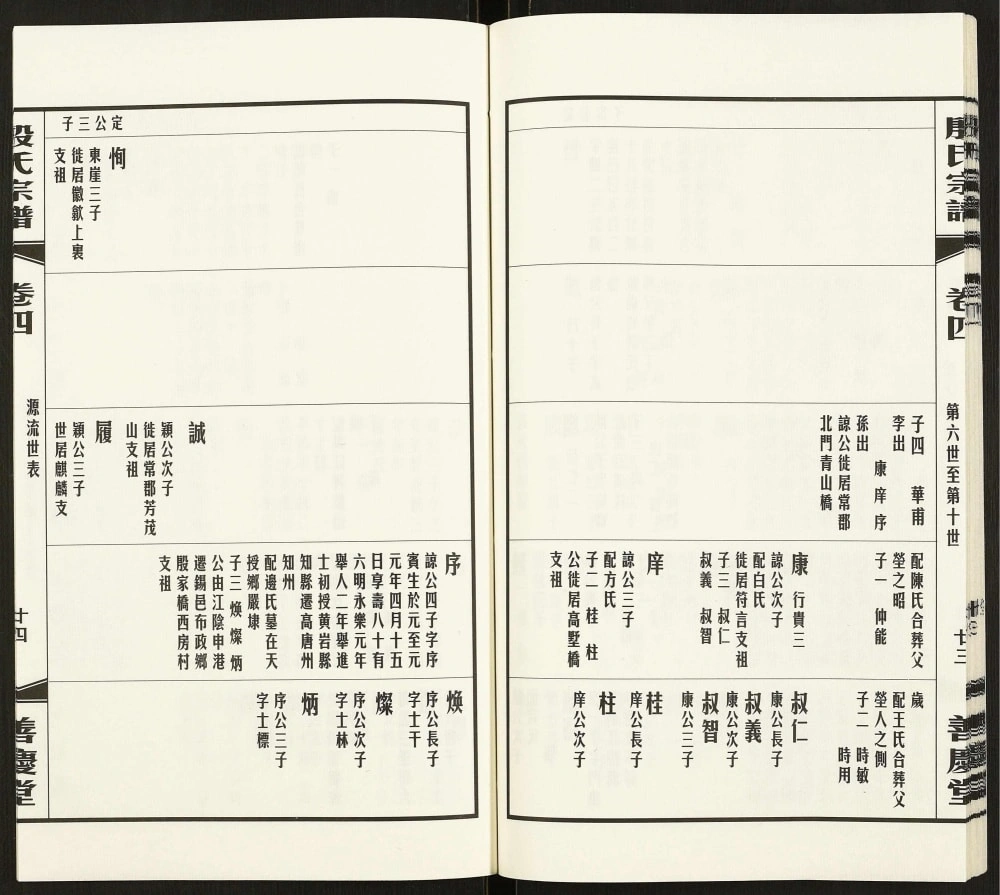 殷氏宗譜
卷四
第六世至第十世
廿三
善慶堂
子四 華甫
李出
康庠序
孫出
諒公徙居常郡
北門青山橋
配陳氏合葬父
塋之昭
子一 仲能
康 行貴三
諒公次子
配白氏
徙居符言支祖
子三 叔仁
叔義 叔智
庠
諒公三子
配方氏
子二 桂 柱
公徙居高墅橋
支祖
歲
配王氏合葬父
塋人之側
子二 時敏
時用
叔仁
康公長子
叔義
康公次子
叔智
康公三子
桂
庠公長子
柱
庠公次子
定公三子
恂
東崖三子
徙居徽歙上裏
支祖
誠
穎公次子
徙居常郡芳茂
山支祖
履
穎公三子
世居麒麟支
序
諒公四子字序
賓生於元至元
元年四月十五
日享壽八十有
六明永樂元年
舉人二年舉進
士初授黃岩縣
知縣遷高唐州
知州
配邊氏墓在天
授鄉嚴埭
子三 煥 燦 炳
公由江陰申港
遷錫邑布政鄉
殷家橋西房村
支祖
煥
序公長子
字士干
燦
序公次子
字士林
炳
序公三子
字士標
殷氏宗譜
卷四
源流世表
廿四
善慶堂